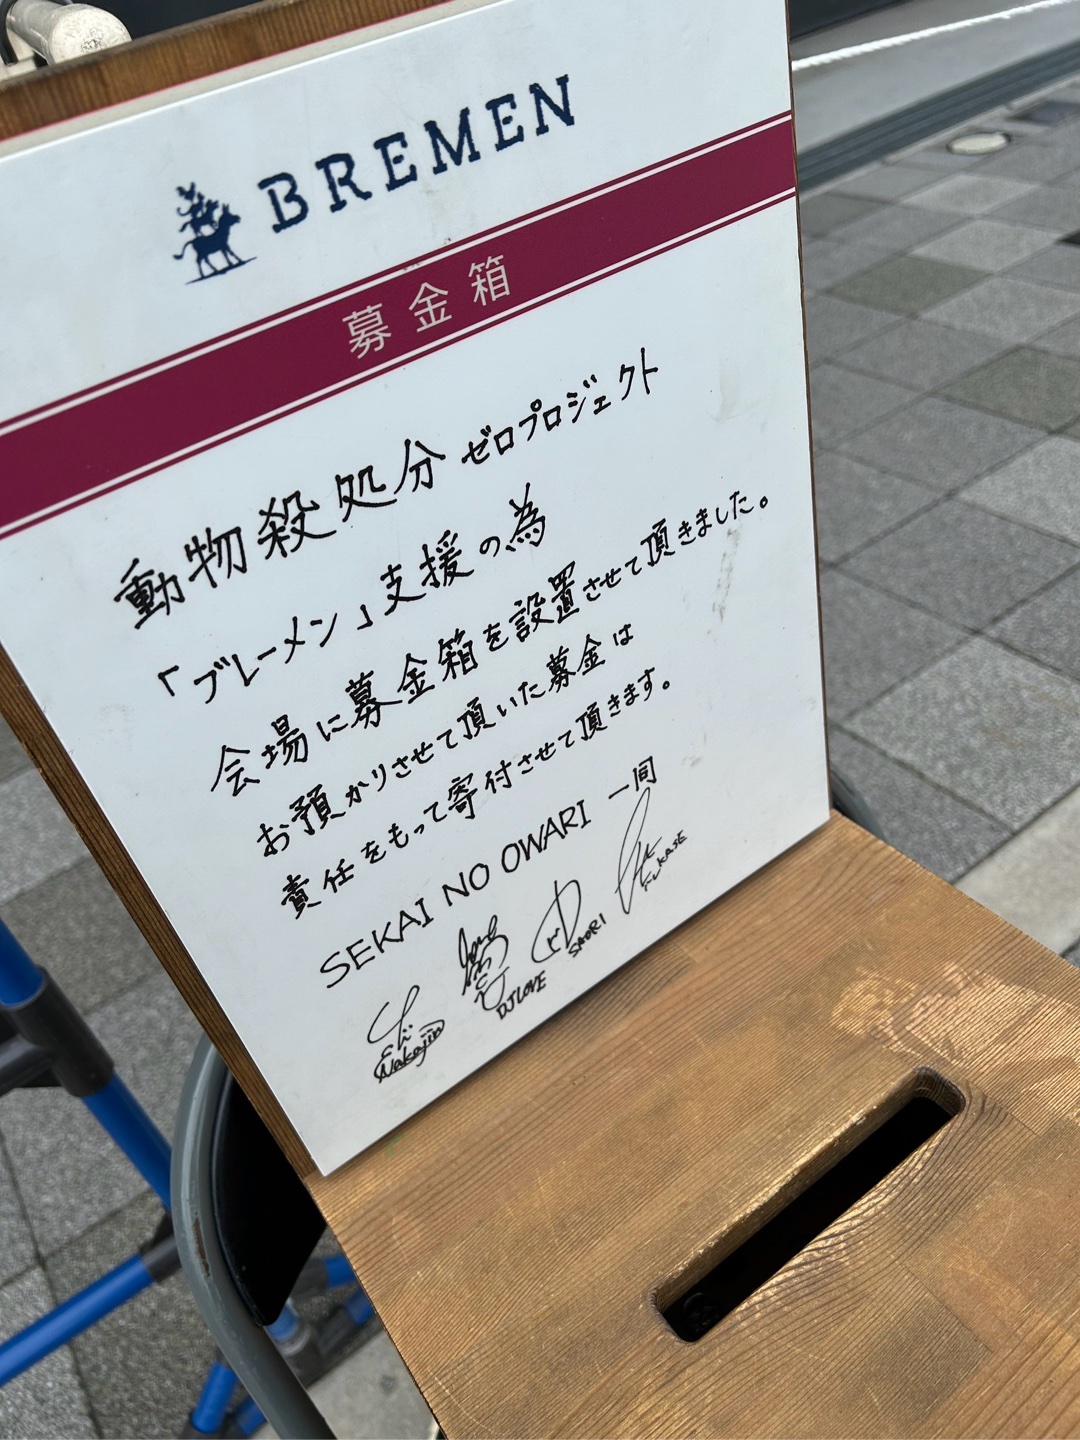 BREMEN
募金箱
動物殺処分ゼロプロジェクト
「ブレーメン」支援の為
会場に募金箱を設置させて頂きました。
お預かりさせて頂いた募金は
責任をもって寄付させて頂きます。
SEKAI NO OWARI 一同
Nakajin DJ LOVE SAORI FUKASE